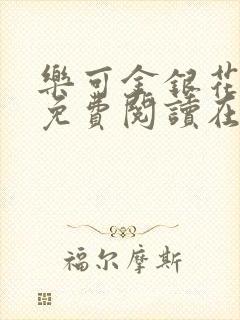 樂可金銀花
免費閱讀在
福尔摩斯